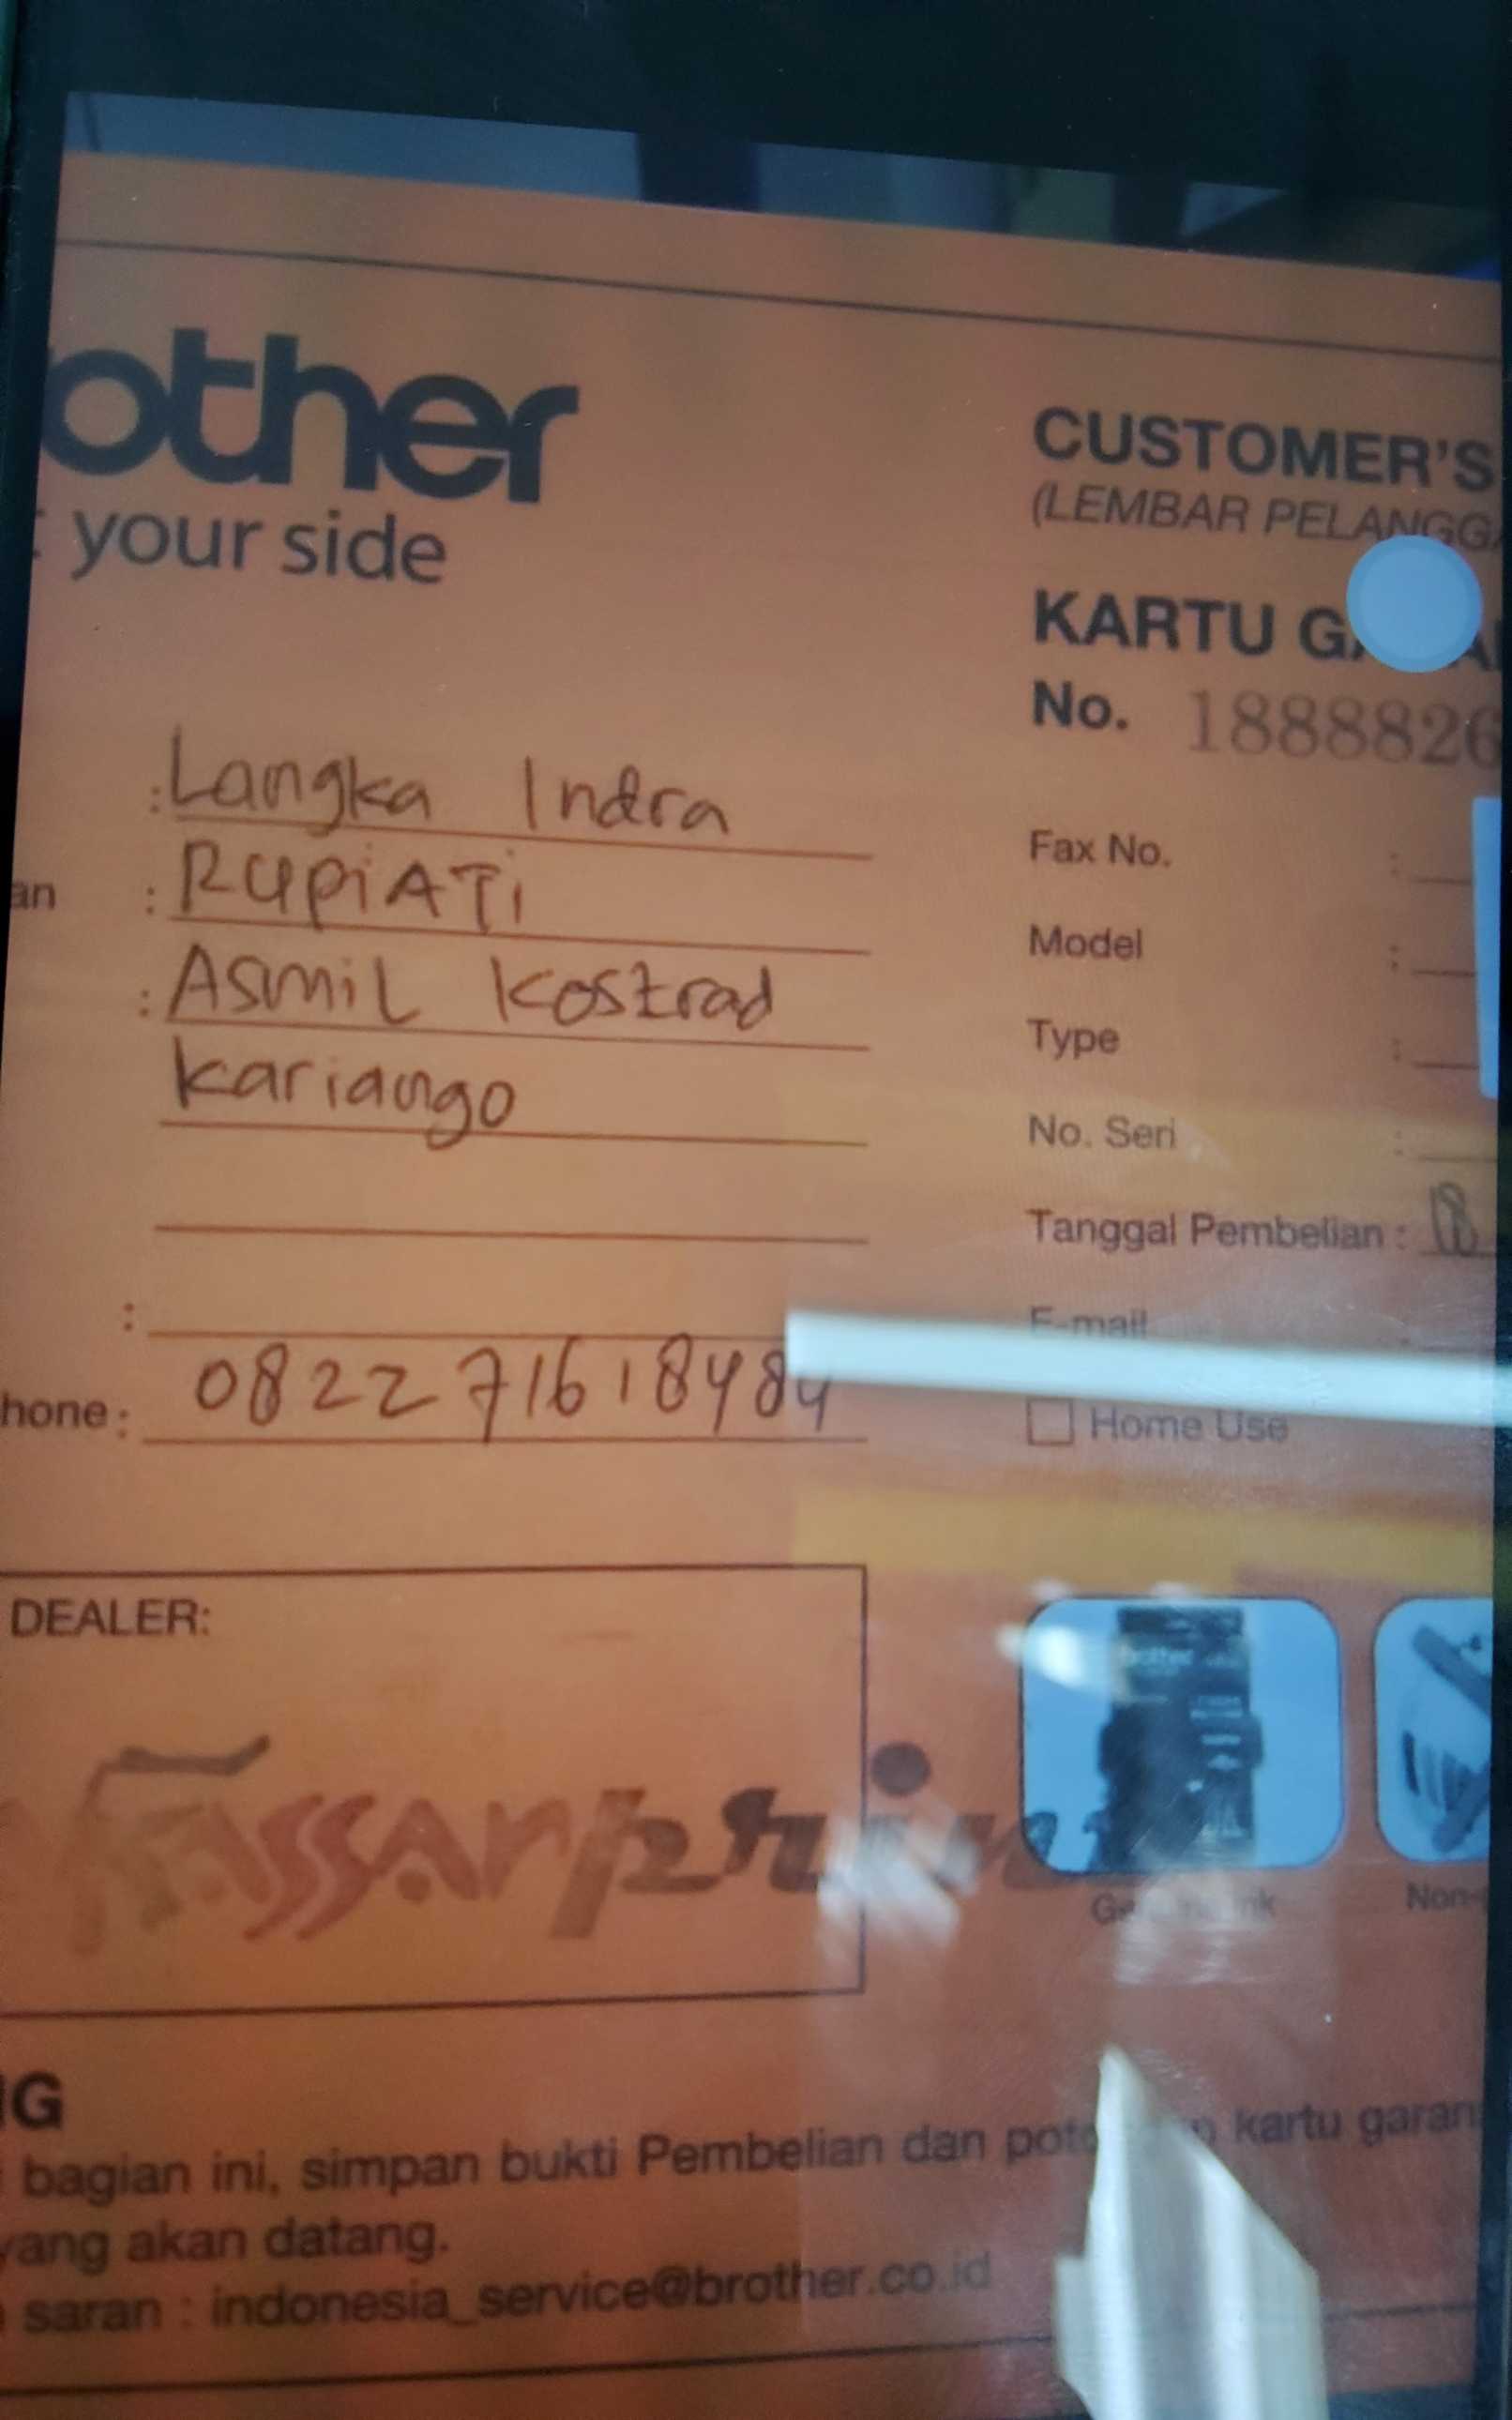 other
your side
CUSTOMER'S
(LEMBAR PELANGGA
KARTU
No. 1888826
: Langka Indra
an : RUPiATi
: ASMiL Kostrad
kariango
:
hone : 082271618484
Fax No. :
Model :
Type :
No. Seri :
Tanggal Pembelian : 18
E-mail
Home Use
DEALER:
assarprin
Non-
IG
bagian ini, simpan bukti Pembelian dan kartu garan
yang akan datang.
saran : indonesia_service@brother.co.id